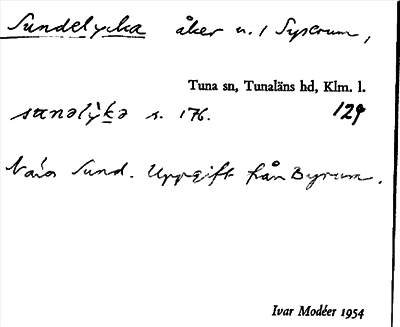 Sundelycka åker n. 1 Syserum,
Tuna sn, Tunaläns hd, Klm. l.
sɑnəlỳkə s. 176. 129
Nära Sund. Uppgift från Byrum.
Ivar Modéer 1954